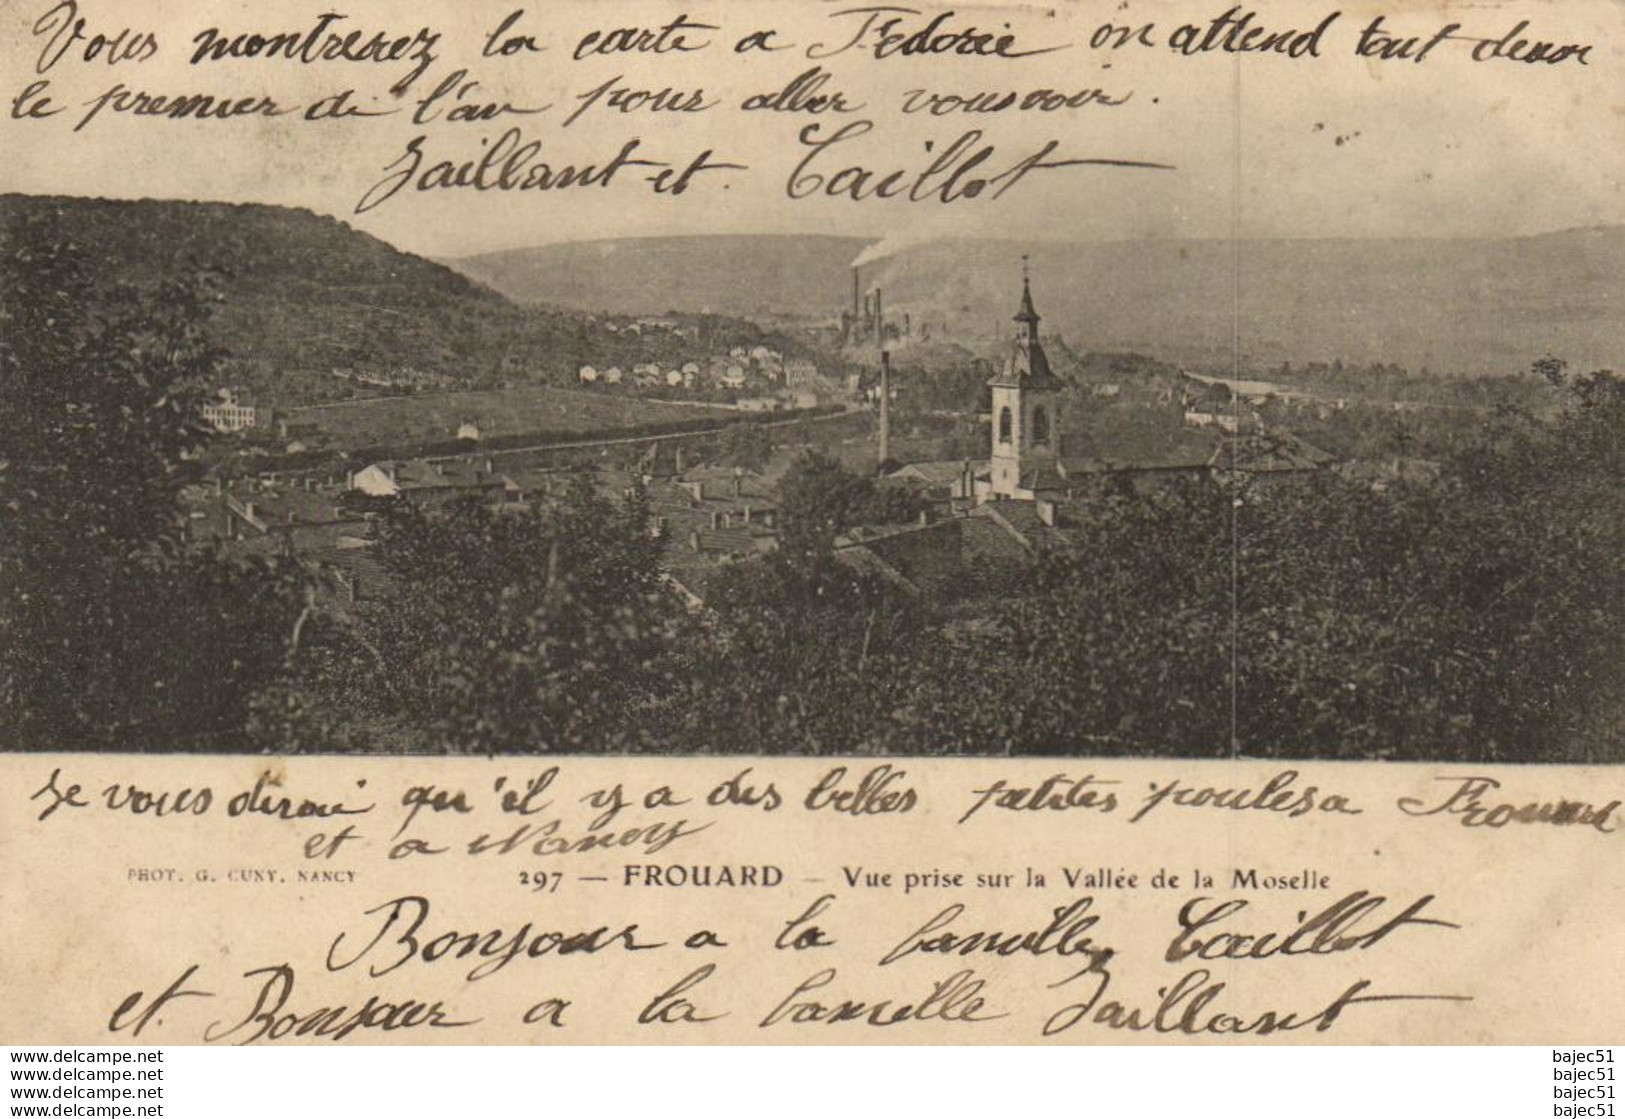 Vous montrerez la carte a Fedorie on attend tout devoir
le premier de l'an pour aller vous voir.
Jaillant et Caillot
Je vous dirai qu'il y a des belles petites poules a Frouard
et a Nancy
PHOT. G. CUNY, NANCY 297 — FROUARD — Vue prise sur la Vallée de la Moselle
Bonjour a la famille Caillot
et Bonjour a la famille Jaillant
www.delcampe.net bajec51
www.delcampe.net bajec51
www.delcampe.net bajec51
www.delcampe.net bajec51